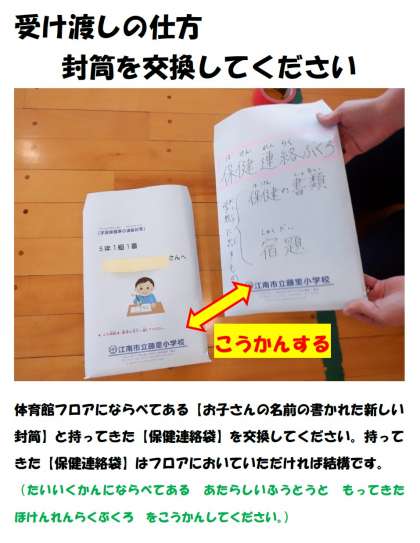 受け渡しの仕方
封筒を交換してください
保健連絡ぶくろ
保健の書類
宿題
江南市立藤里小学校
5年1組1番
さんへ
江南市立藤里小学校
こうかんする
体育館フロアにならべてある【お子さんの名前の書かれた新しい
封筒】と持ってきた【保健連絡袋】を交換してください。持って
きた【保健連絡袋】はフロアにおいていただければ結構です。
（たいいくかんにならべてある　あたらしいふうとうと　もってきた
ほけんれんらくぶくろ　をこうかんしてください。）